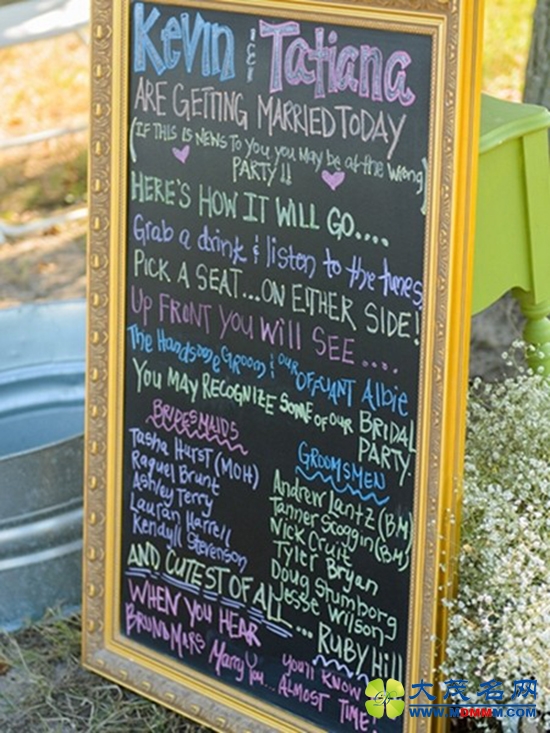 Kevin & Tatiana
ARE GETTING MARRIED TODAY
(IF THIS IS NEWS TO YOU, you MAy be at the wrong
PARTY!!
HERE'S HOW IT WILL GO....
Grab a drink & listen to the tunes
PICK A SEAT...ON EITHER SIDE!
UP FRONT YOU WILL SEE....
The Handsome Groom & our OFFICIANT Albie
YOU MAY RECOGNIZE SOME OF OUR BRIDAL
PARTY.
BRIDESMAIDS
Tasha Hurst (MOH)
Raquel Brunt
Ashley Terry
Lauran Harrell
Kendyll Stevenson
GROOMSMEN
Andrew Lantz (BM)
Tanner Scoggin (BM)
Nick Cruit
Tyler Bryan
Doug Stumborg
Jesse Wilson
AND CUTEST OF ALL... RUBY Hill
WHEN YOU HEAR
BRUNO MARS Marry You... you'll KNOW
ALMOST TIME!
大茂名网
WWW.MDMMM.COM